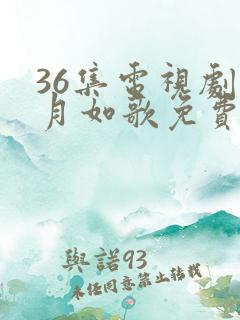 36集電視劇
月如歌免費
與諾93
未任同意禁止轉載